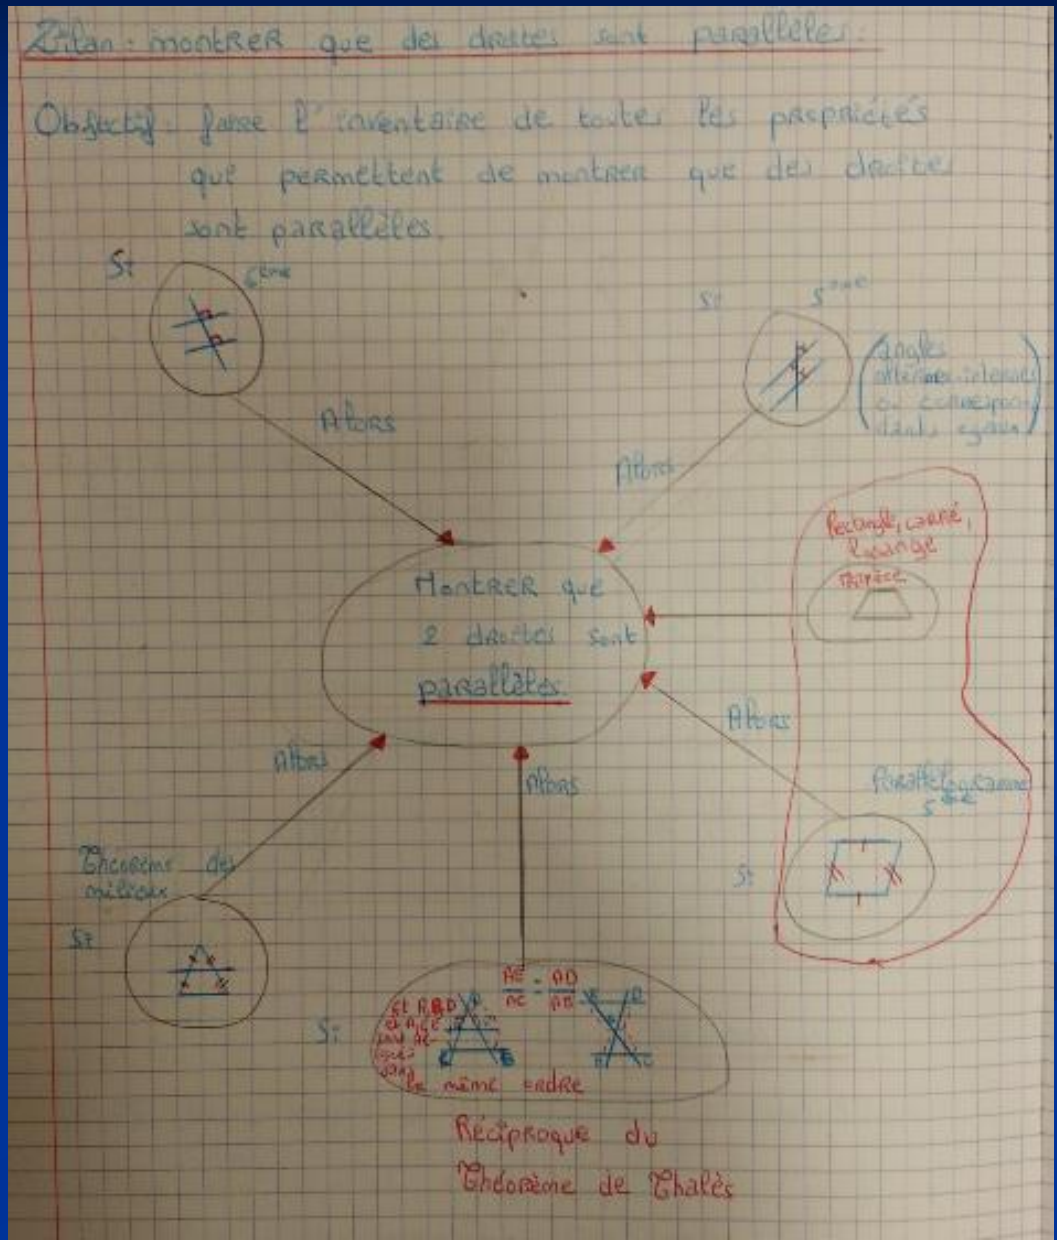 Bilan: montrer que des droites sont parallèles.
Objectif: faire l'inventaire de toutes les propriétés
que permettent de montrer que des droites
sont parallèles.
Si
6ème
Si 5ème
(angles
alternes-internes
ou correspon
dants égaux)
Alors
Alors
Rectangle, carré,
losange
trapèze
Montrer que
2 droites sont
parallèles.
Alors
Alors
Alors
Parallélogramme
5ème
Si
Théorème des
milieux
Si
Si
AE/AC = AD/AB
et A,B,D
et A,C,E
sont ali-
gnés
dans
le même ordre
Réciproque du
Théorème de Thalès